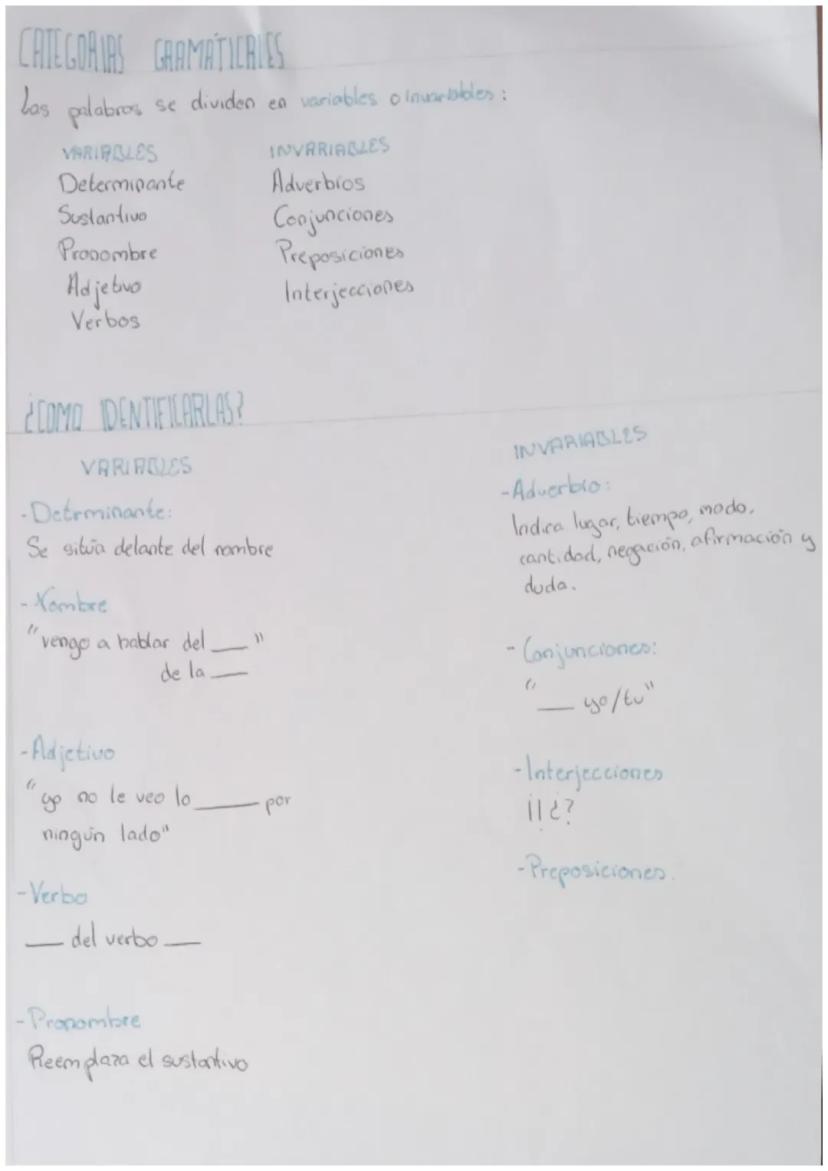 CATEGORIAS GRAMÁTICALES
Las palabras se dividen en variables o invariables:
VARIABLES
Determinante
Sustantivo
Pronombre
Adjetivo
Verbos
INVARIABLES
Adverbios
Conjunciones
Preposiciones
Interjecciones
¿COMO IDENTIFICARLAS?
VARIABLES
-Detrminante:
Se sitúa delante del nombre
-Nombre
"vengo a hablar del ___"
de la ___
-Adjetivo
"yo no le veo lo ____ por
ningún lado"
-Verbo
___ del verbo ___
-Pronombre
Reemplaza el sustantivo
INVARIABLES
-Adverbio:
Indica lugar, tiempo, modo,
cantidad, negación, afirmación y
duda.
-Conjunciones:
"___ yo/tu"
-Interjecciones
¡!¿?
-Preposiciones.